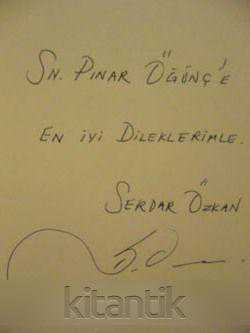 SN. PINAR ÖĞÜNÇ'E
EN İYİ DİLEKLERİMLE.
SERDAR ÖZKAN
kitantik